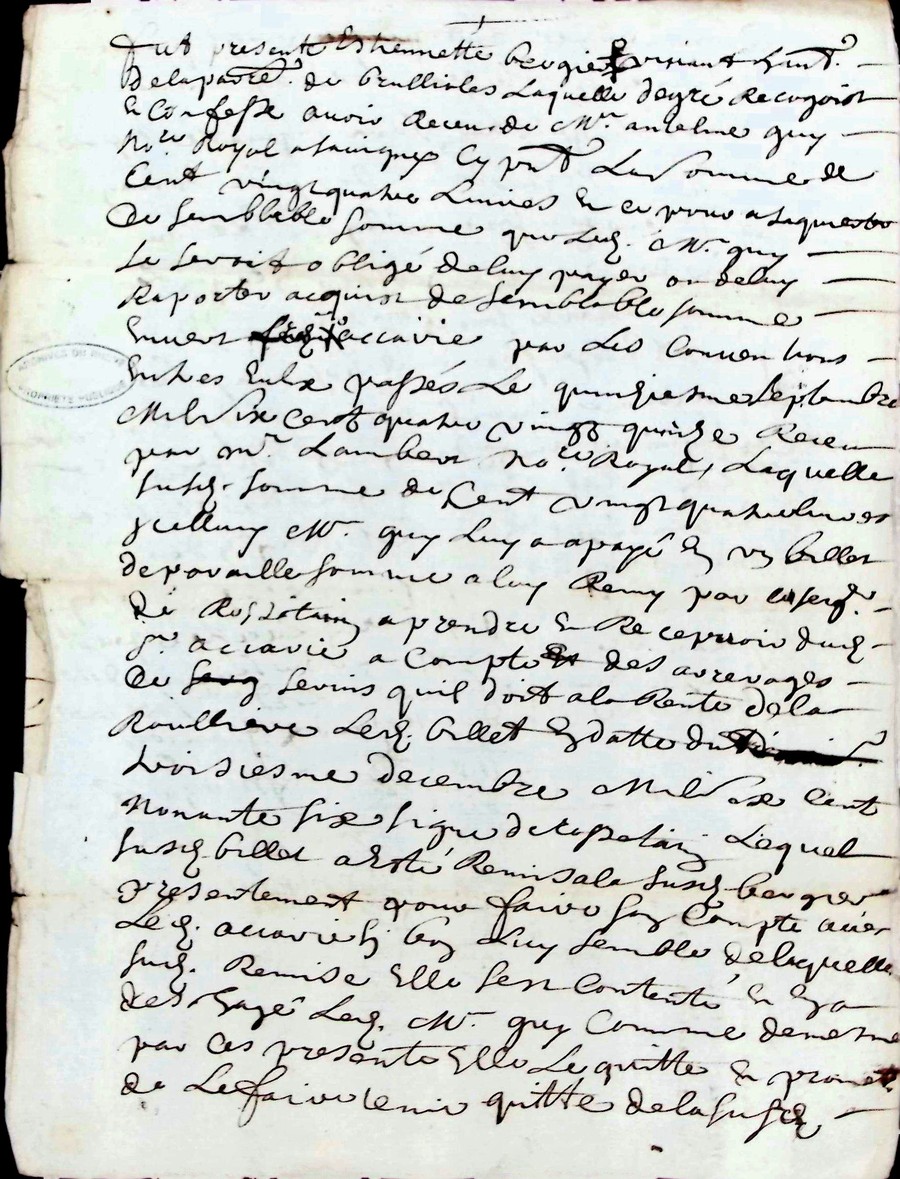 fut presente Estiennette bergier habitant
De la parre. de brullioles Laquelle de gré Recognoist
Et Confesse avoir Receu de Mr. anthelme guy
No.re Royal cy pnt La Somme de
Cent vingt quatre Livres Et ce pour
De Semblable Somme que Led. Mr. guy
Se Seroit obligé de luy payer ou de luy
Raporter acquist de Semblable Somme
Envers accarie par Les Conventions
Entres Eulx passés Le quinziesme Septembre
Mil Six cent quatre vingt quinze Receu
par mr. Lambert No.re Royal, Laquelle
Susd. Somme de Cent vingt quatre livres
Icelluy Mr. guy Luy a payé En un billet
de pareille Somme a luy Remy par
de a prendre Et Recepvoir dud.
Sr. accarie a Compte des arrerages
De Servis quil doit a la Rente de la
Roulliere Led. billet En datte du
troisiesme decembre Mil Six Cent
Nonante Six Signé Lequel
Susd. billet a Esté Remis a la Susd. bergier
presentement pour faire Son Compte avec
Led. accarie Si bon Luy Semble de laquelle
Susd. Remise Elle Sest Contenté Et En a
Led. Mr. guy Comme de mesme
par Ces presente Elle Le quitte Et promet
de Le faire tenir quitte de la Susd.